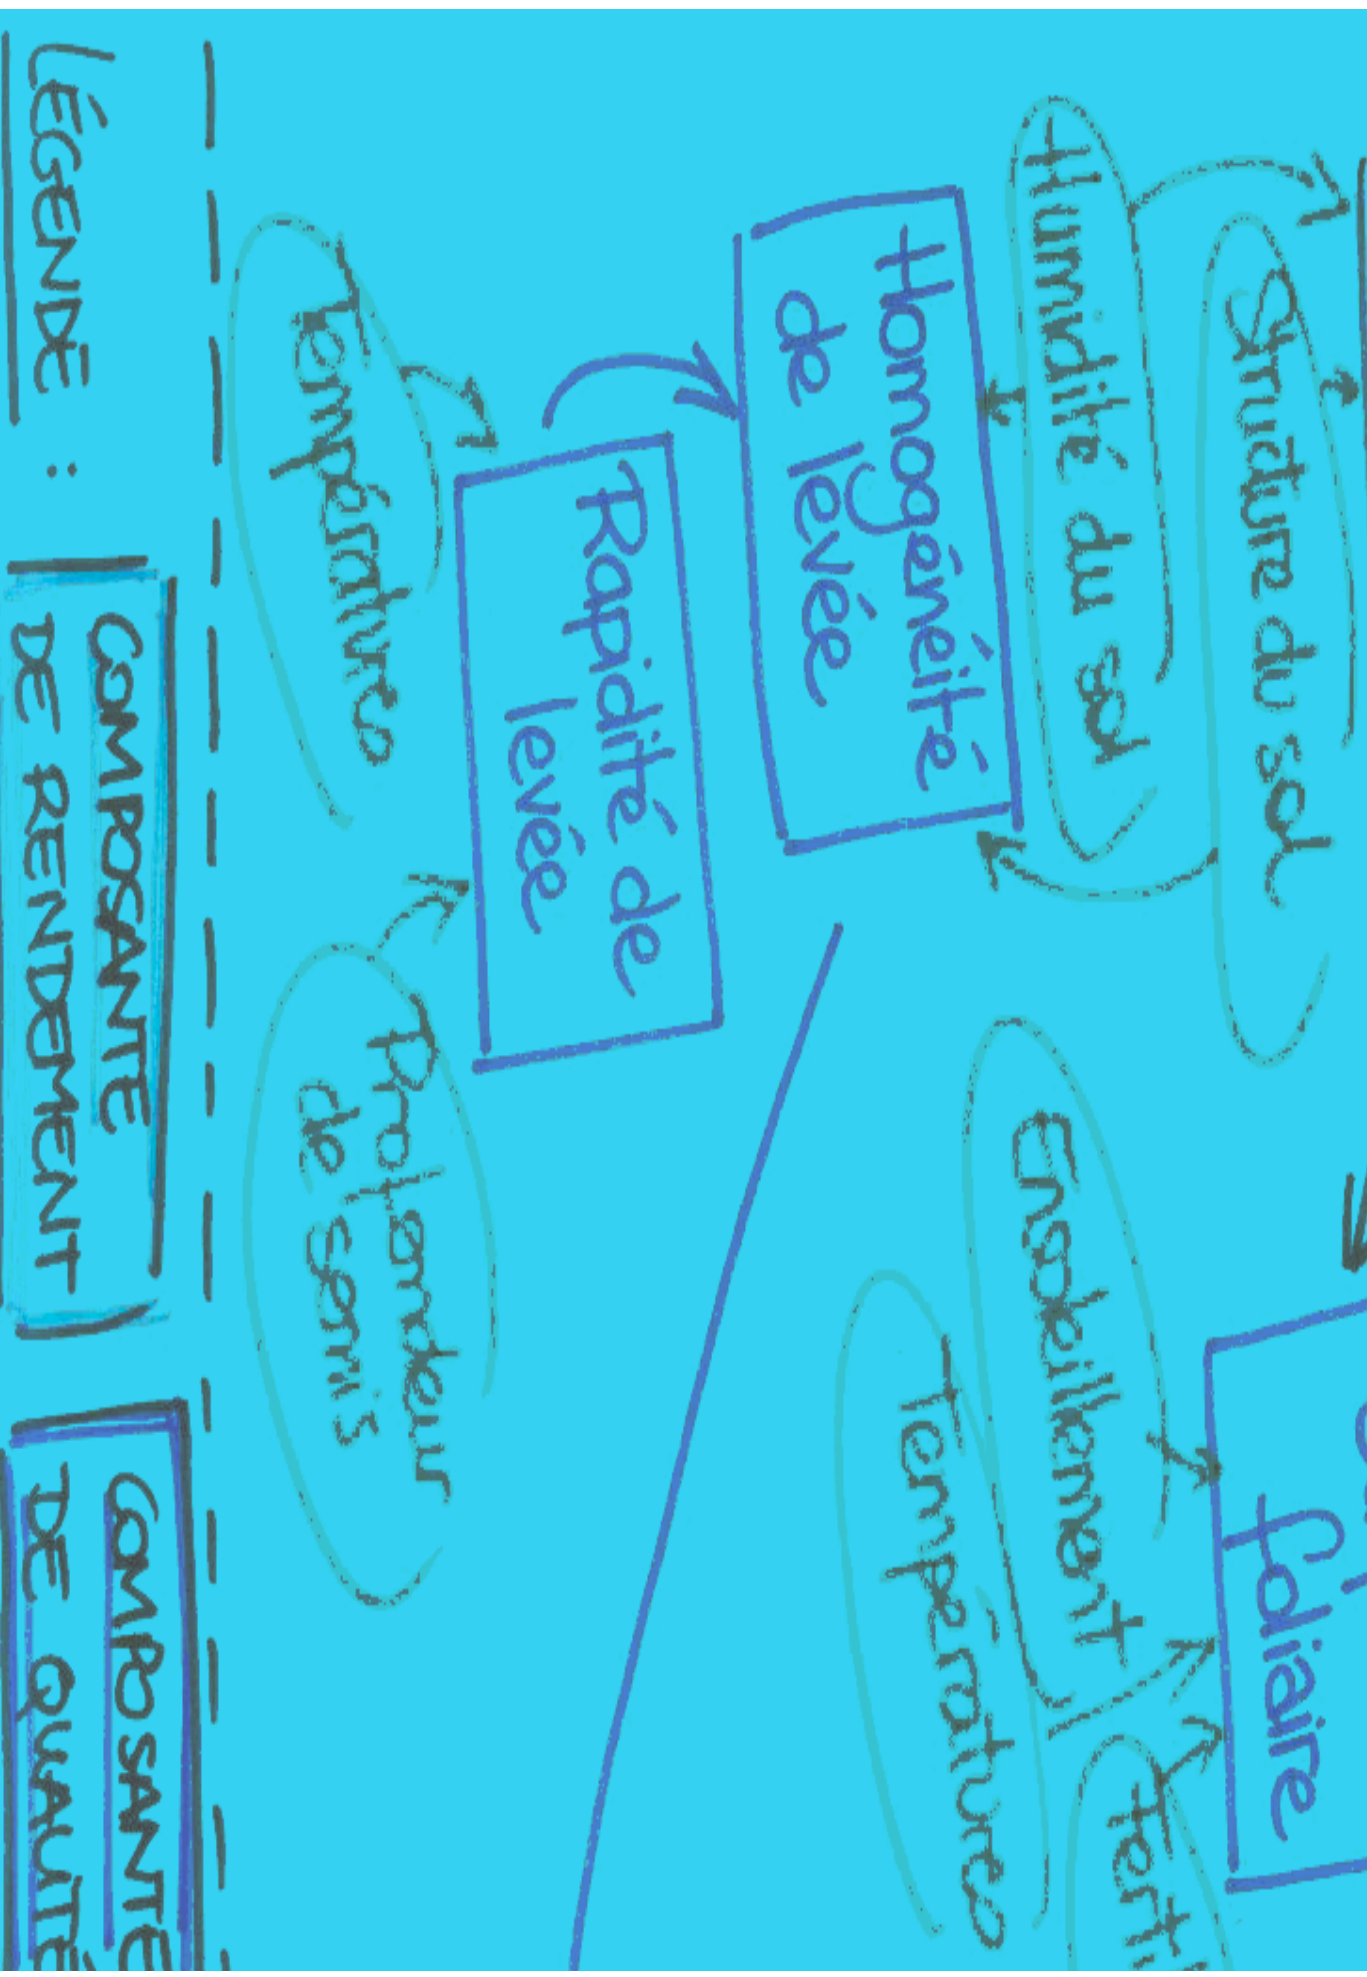 Structure du sol
Humidité du sol
Homogénéité
de levée
Rapidité de
levée
Températures
Profondeur
de semis
foliaire
Ensoleillement
Températures
LÉGENDE :
COMPOSANTE
DE RENDEMENT
COMPOSANTE
DE QUALITÉ